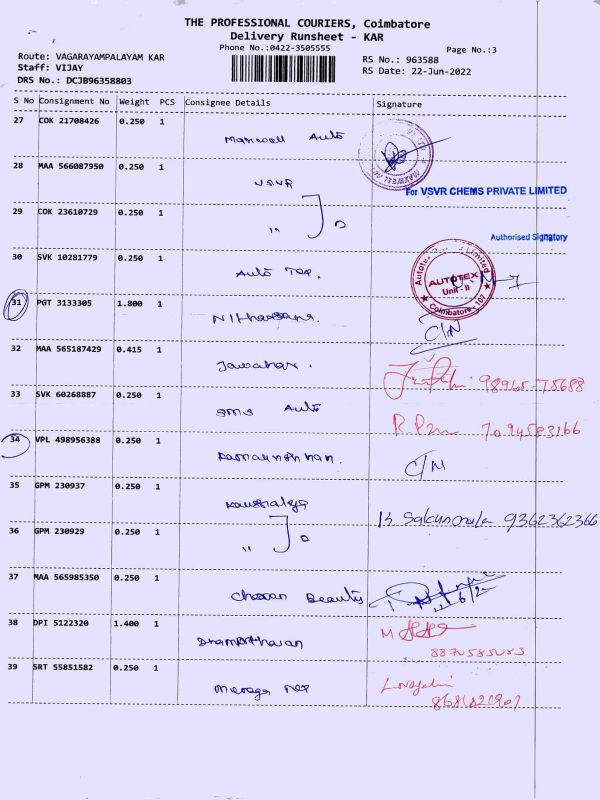 THE PROFESSIONAL COURIERS, Coimbatore
Delivery Runsheet - KAR
Phone No.:0422-3505555
Page No.:3
Route: VAGARAYAMPALAYAM KAR
RS No.: 963588
Staff: VIJAY
RS Date: 22-Jun-2022
DRS No.: DCJB96358803
S No Consignment No Weight PCS Consignee Details Signature
27 COK 21708426 0.250 1
Maxwell Auto
28 MAA 566087950 0.250 1
VSVR
For VSVR CHEMS PRIVATE LIMITED
29 COK 23610729 0.250 1
"
Authorised Signatory
30 SVK 10281779 0.250 1
Auto Tex.
AUTOTEX
Unit - II
Coimbatore - 107
31 PGT 3133305 1.800 1
C/N
32 MAA 565187429 0.415 1
Jawahar.
98965-75688
33 SVK 60268887 0.250 1
SMS Auto
34 VPL 498956388 0.250 1
C/N
35 GPM 230937 0.250 1
Kausalya
9362362366
36 GPM 230929 0.250 1
"
37 MAA 565985350 0.250 1
Beauty
38 DPI 5122320 1.400 1
39 SRT 55851582 0.250 1